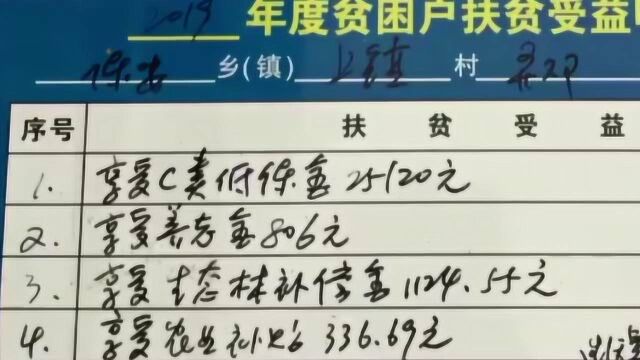 2019 年度贫困户扶贫受益
保安 乡(镇) 上镇 村
序号 扶贫受益
1. 享受C类低保金25120元
2. 享受养老金806元
3. 享受生态林补偿金1124.55元
4. 享受农业补贴336.69元